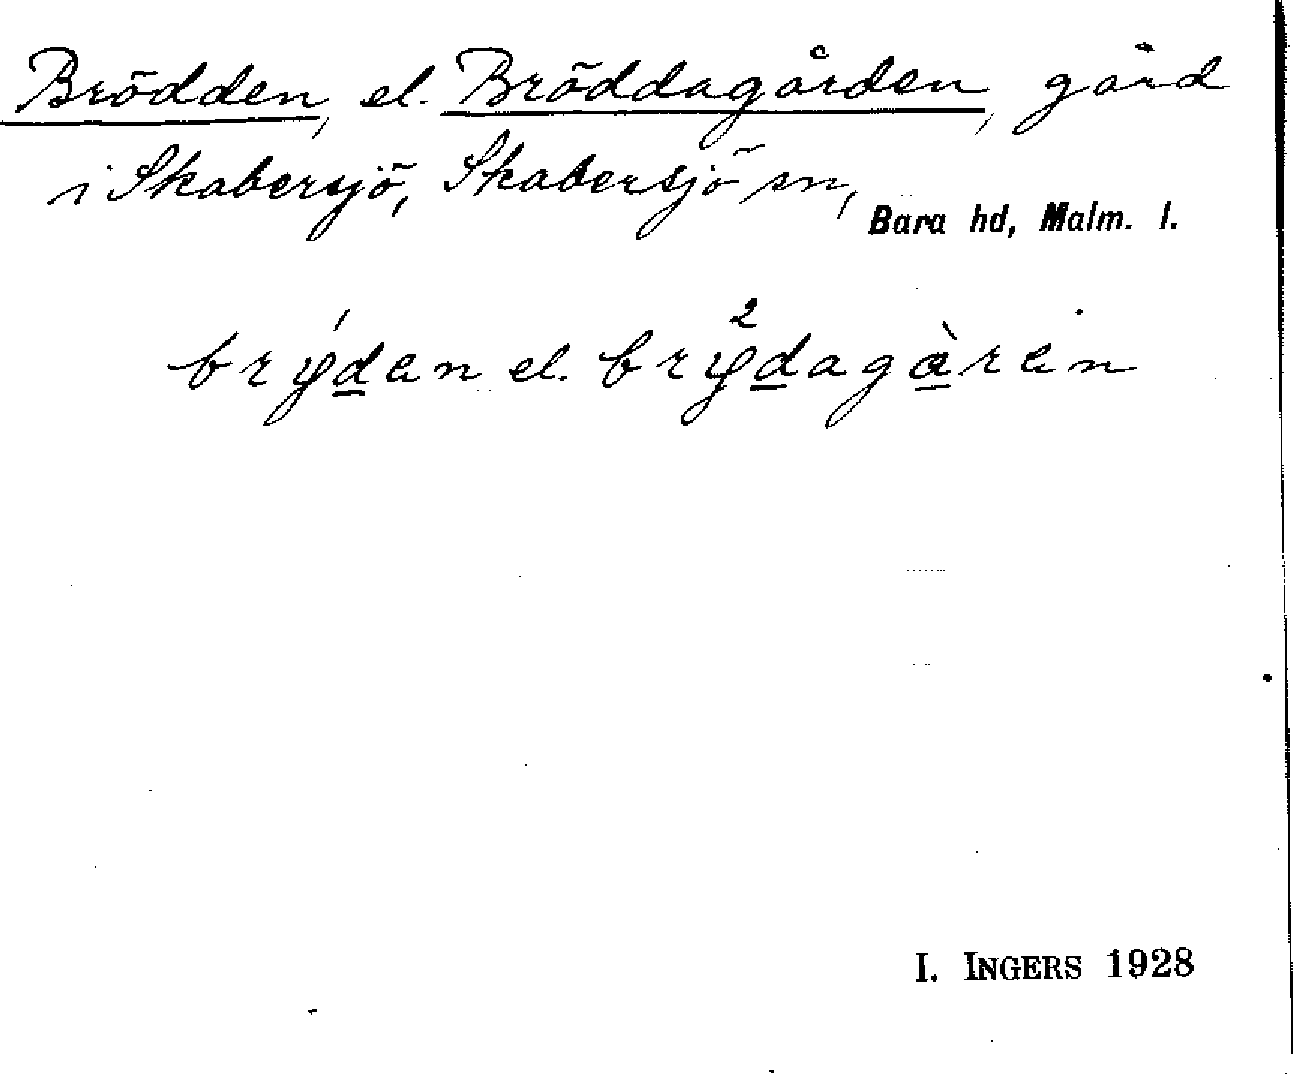 Brödden, el. Bröddagården, gård
i Skabersjö, Skabersjö sn,
Bara hd, Malm. l.
brýden el. brÿ²dagàren
I. INGERS 1928